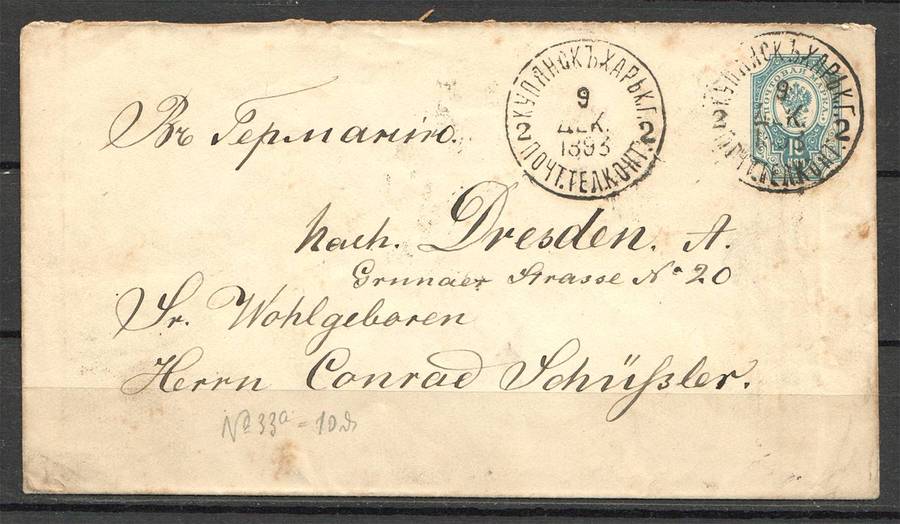 Въ Германію.
КУПЯНСКЪ ХАРЬК.Г.
9
ДЕК.
1893
2 2
ПОЧТ.ТЕЛ.КОНТ.
КУПЯНСКЪ ХАРЬК.Г.
9
2 2
ПОЧТ.ТЕЛ.КОНТ.
ПОЧТОВАЯ МАРКА
nach. Dresden. A.
Grunaer Strasse No 20
Sr. Wohlgeboren
Herrn Conrad Schüssler.
№ 33a = 10